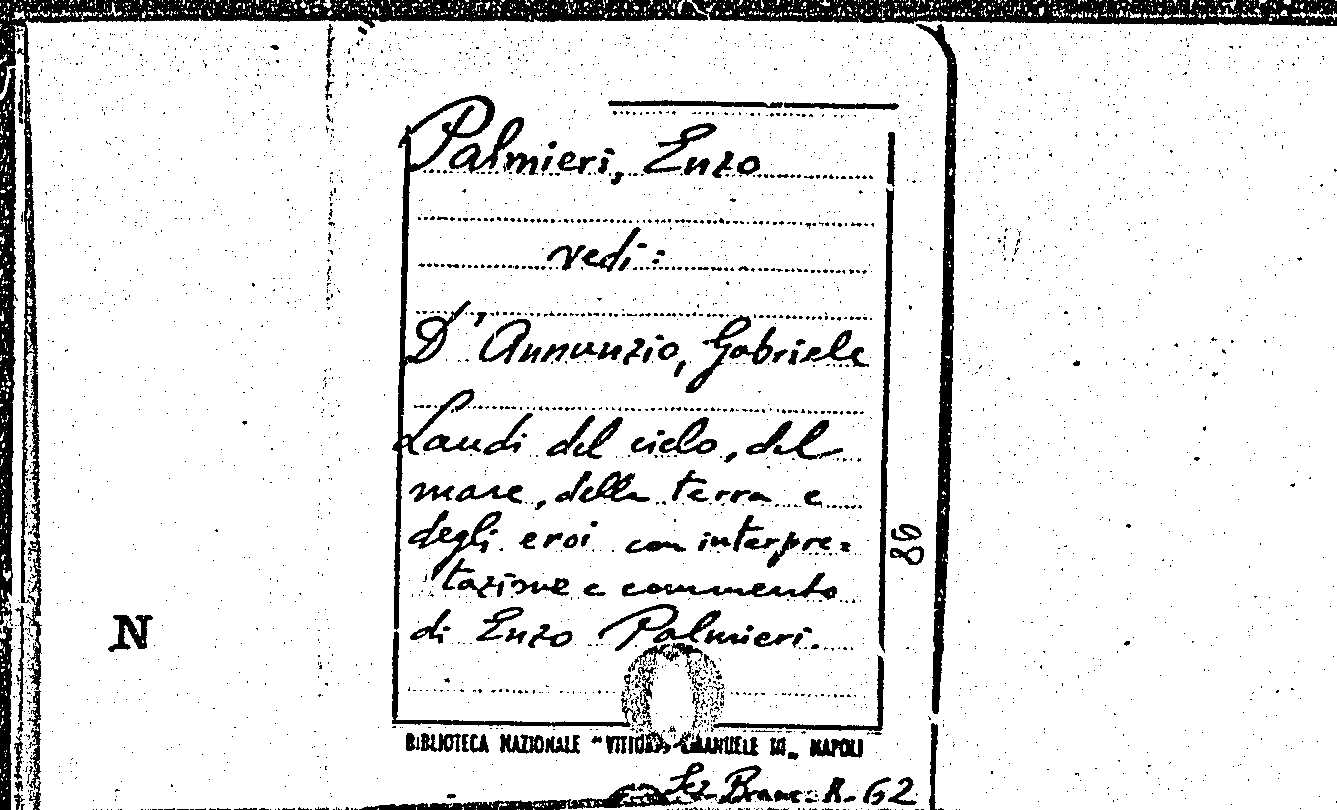 Palmieri, Enzo
vedi:
D'Annunzio, Gabriele
Laudi del cielo, del
mare, della terra e
degli eroi con interpre=
tazione e commento
di Enzo Palmieri.
86
N
BIBLIOTECA NAZIONALE "VITTORIO EMANUELE III„ NAPOLI
Sez. Branc. R. G2